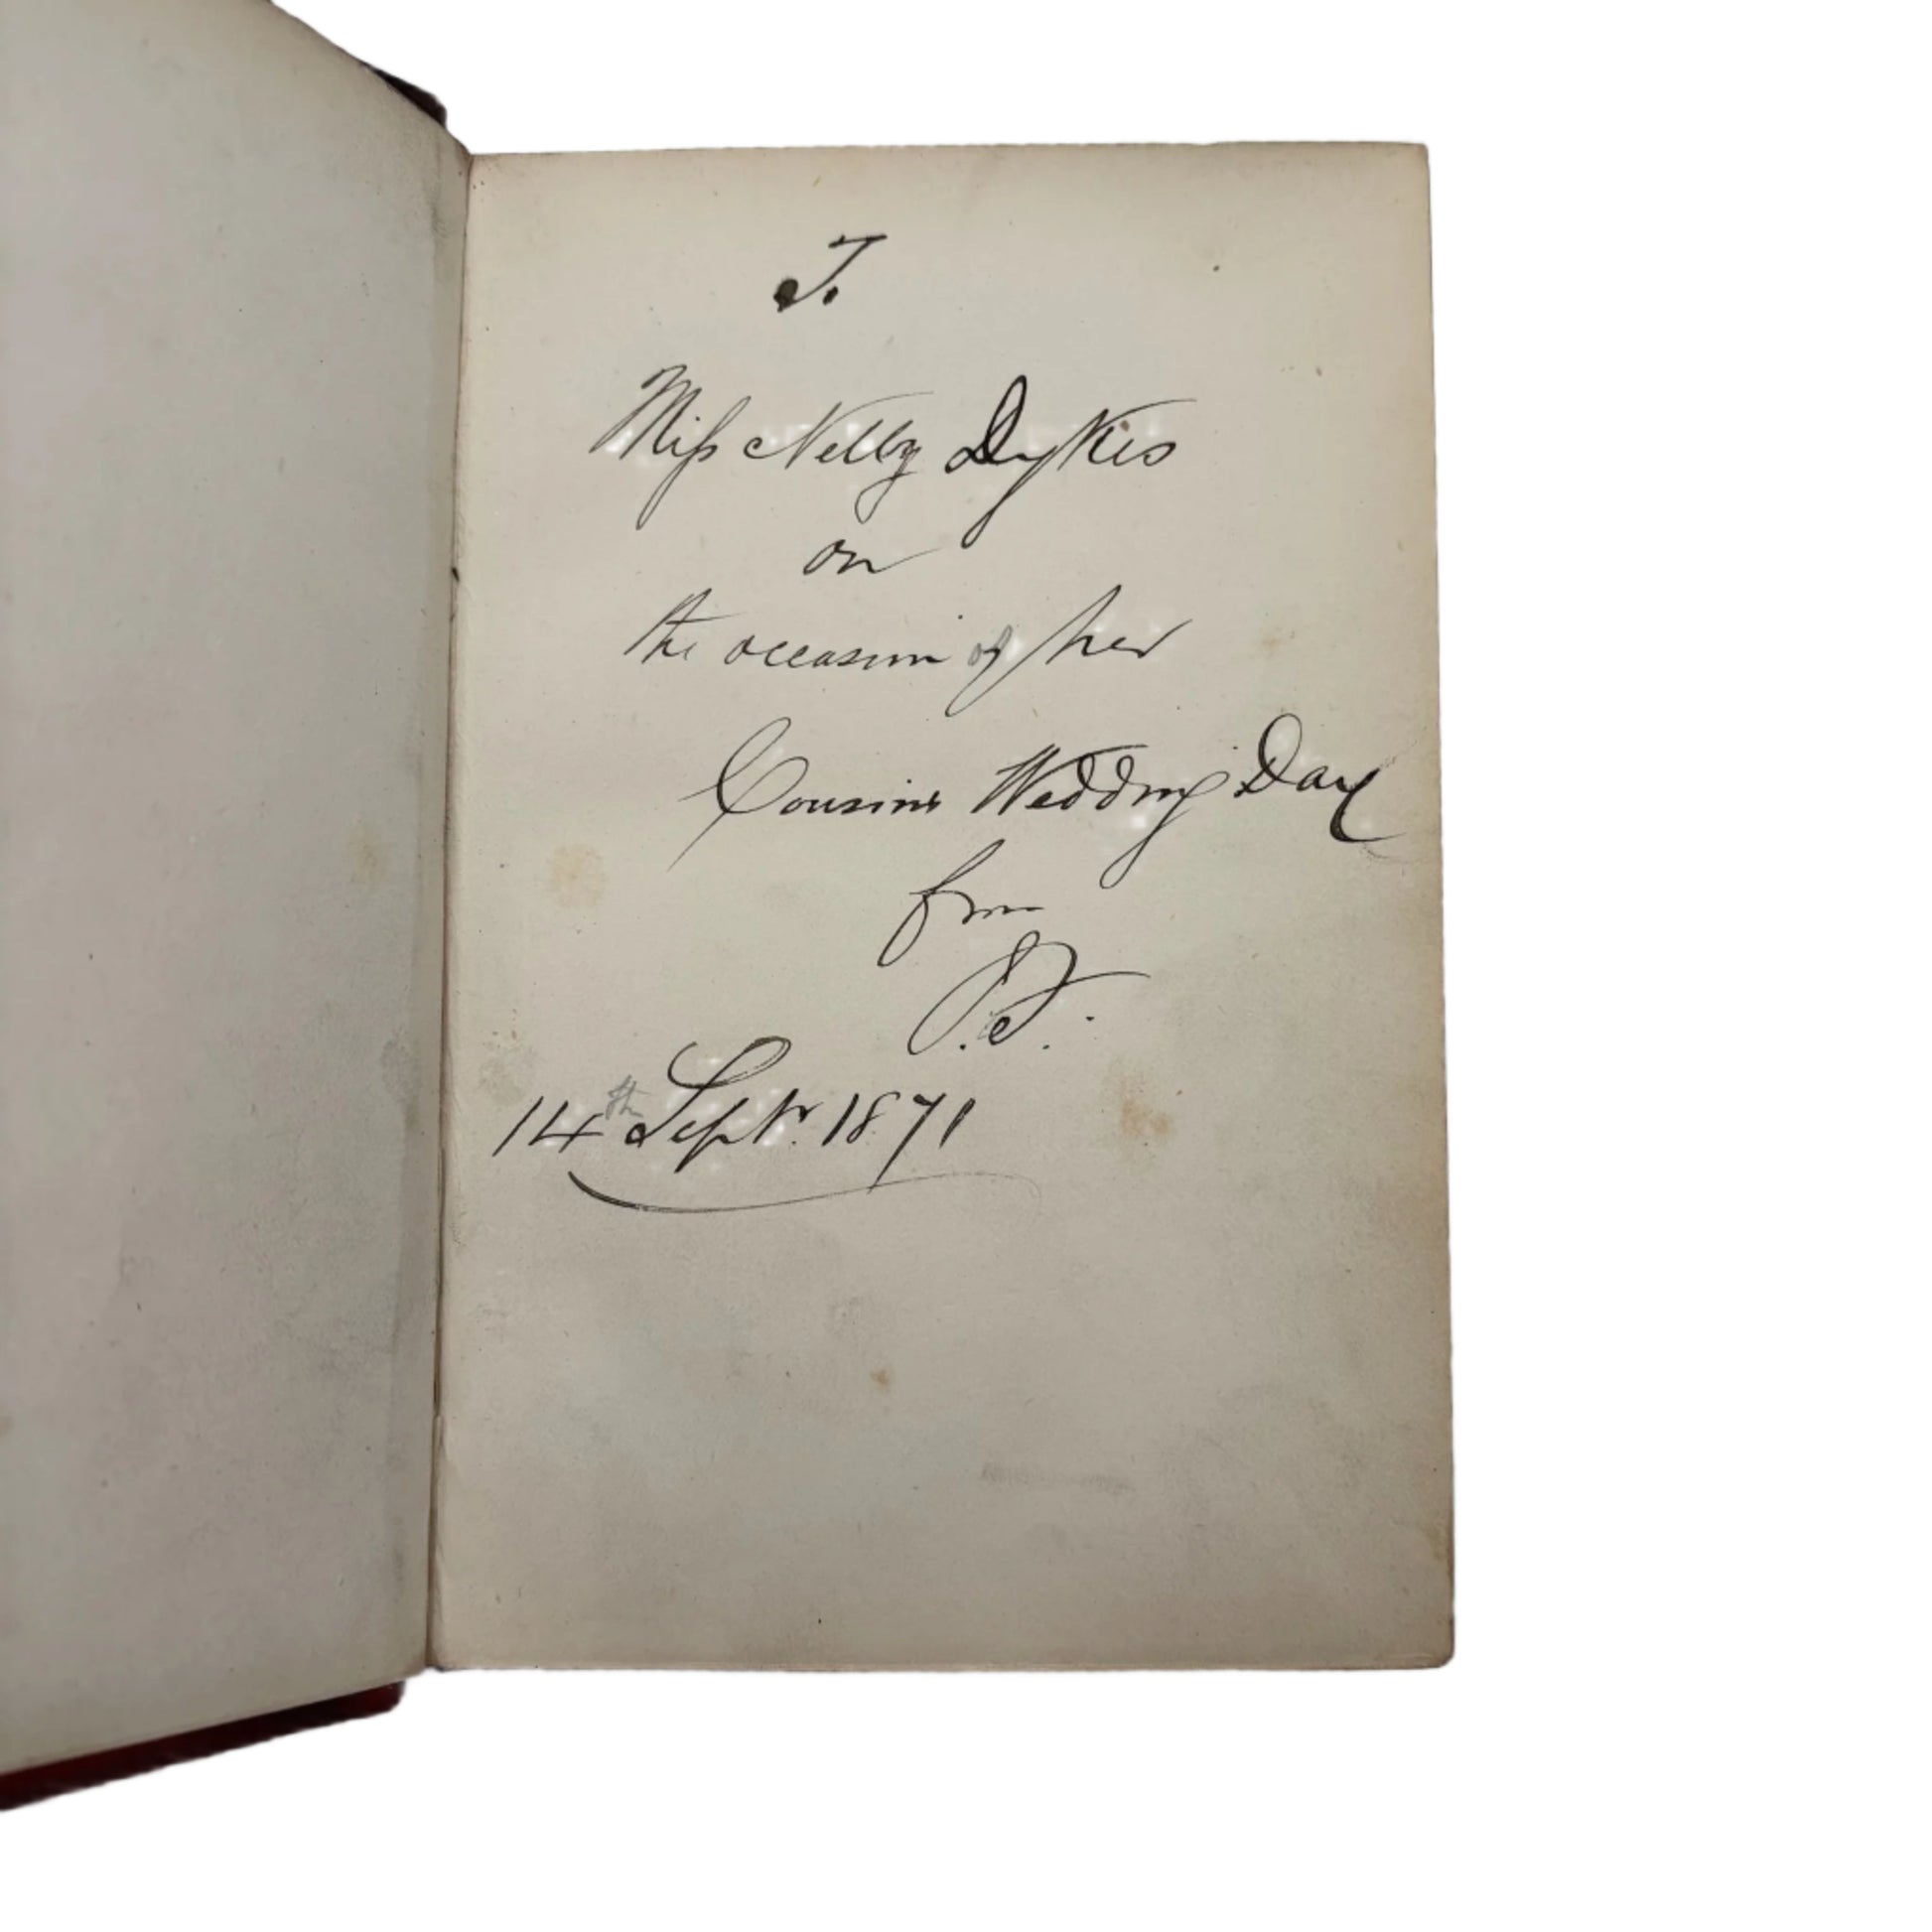 To
Miss Nelly Dykes
on
the occasion of her
Cousins Wedding Day
from
J.T.
14th Septr. 1871